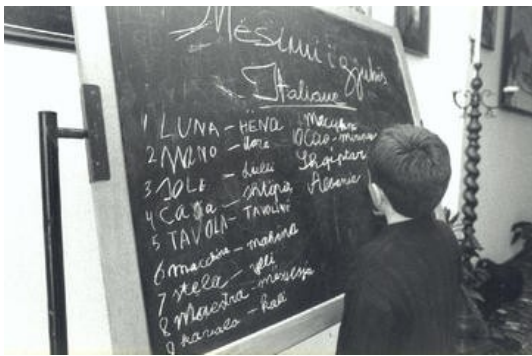 Mësimi i gjuhës
Italiane
1 LUNA - HËNA
2 MANO - dora
3 SOLE - dielli
4 CASA - shtëpia
5 TAVOLA - TAVOLINË
6 macchina - makina
7 stela - ylli
8 Maestra - mësuesja
9 kavalo - kali
10 CAO - mirmja
Shqiptar
Albania